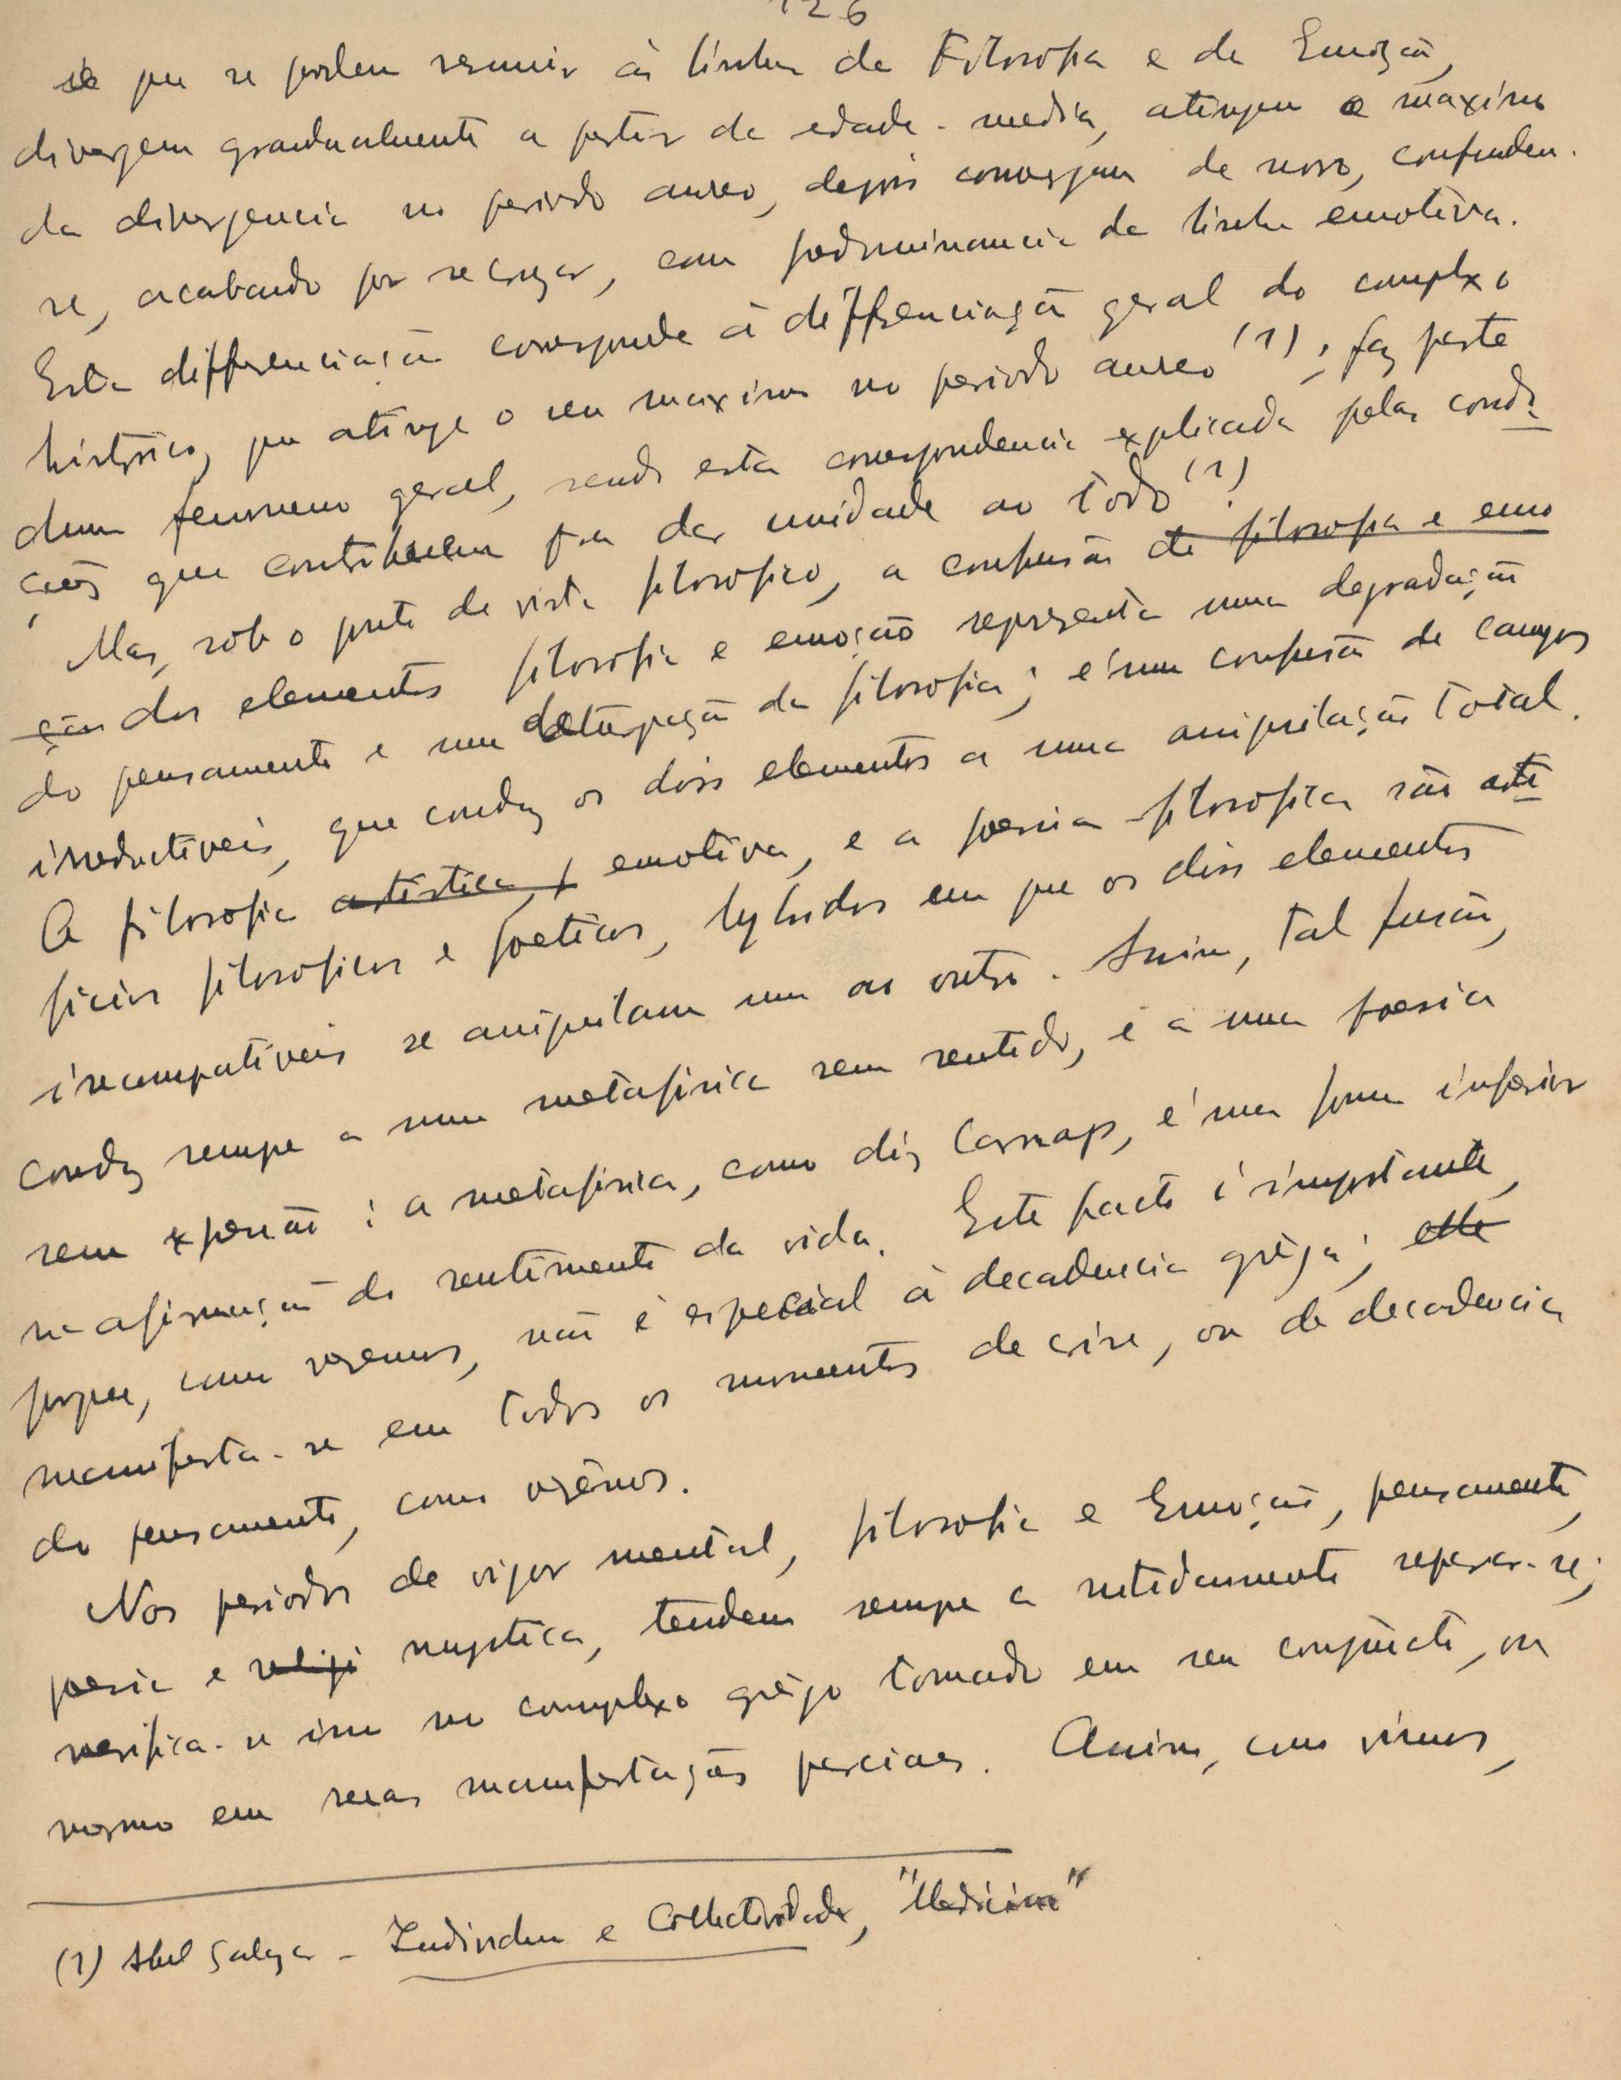 126
que se podem resumir ás linhas da Filosofia e da Emoção,
divergem gradualmente a partir da edade-media, atingem o maximo
da divergencia no periodo aureo, depois convergem de novo, confundem-
se, acabando por se cruzar, com predominancia da linha emotiva.
Esta differenciação corresponde á differenciação geral do complexo
historico, que atinge o seu maximo no periodo aureo (1); faz parte
dum fenomeno geral, sendo esta correspondencia explicada pelas condi
ções que contribuem para dar unidade ao todo (1).
Mas, sob o ponto de vista filosofico, a confusão de filosofia e emo
ção dos elementos filosofia e emoção representa uma degradação
do pensamento e uma deturpação da filosofia; é uma confusão de campos
irreductiveis, que conduz os dois elementos a uma aniquilação total.
A filosofia artistica, emotiva, e a poesia filosofica são arti
ficios filosoficos e poeticos, hybridos em que os dois elementos
incompativeis se aniquilam um ao outro. Assim, tal fusão,
conduz sempre a uma metafisica sem sentido, e a uma poesia
sem expressão: a metafisica, como diz Carnap, é uma forma inferior
na afirmação do sentimento da vida. Este facto é importante,
porque, como veremos, não é especial á decadencia grêga; elle
manifesta-se em todos os momentos de crise, ou de decadencia
do pensamento, como verêmos.
Nos periodos de vigor mental, filosofia e Emoção, pensamento,
poesia e religi mystica, tendem sempre a nitidamente separar-se;
verifica-se isso no complexo grêgo tomado em seu conjuncto, ou
mesmo em suas manifestações parciaes. Assim, como vimos,
(1) Abel Salazar - Individuo e Collectividade, "Medicina"